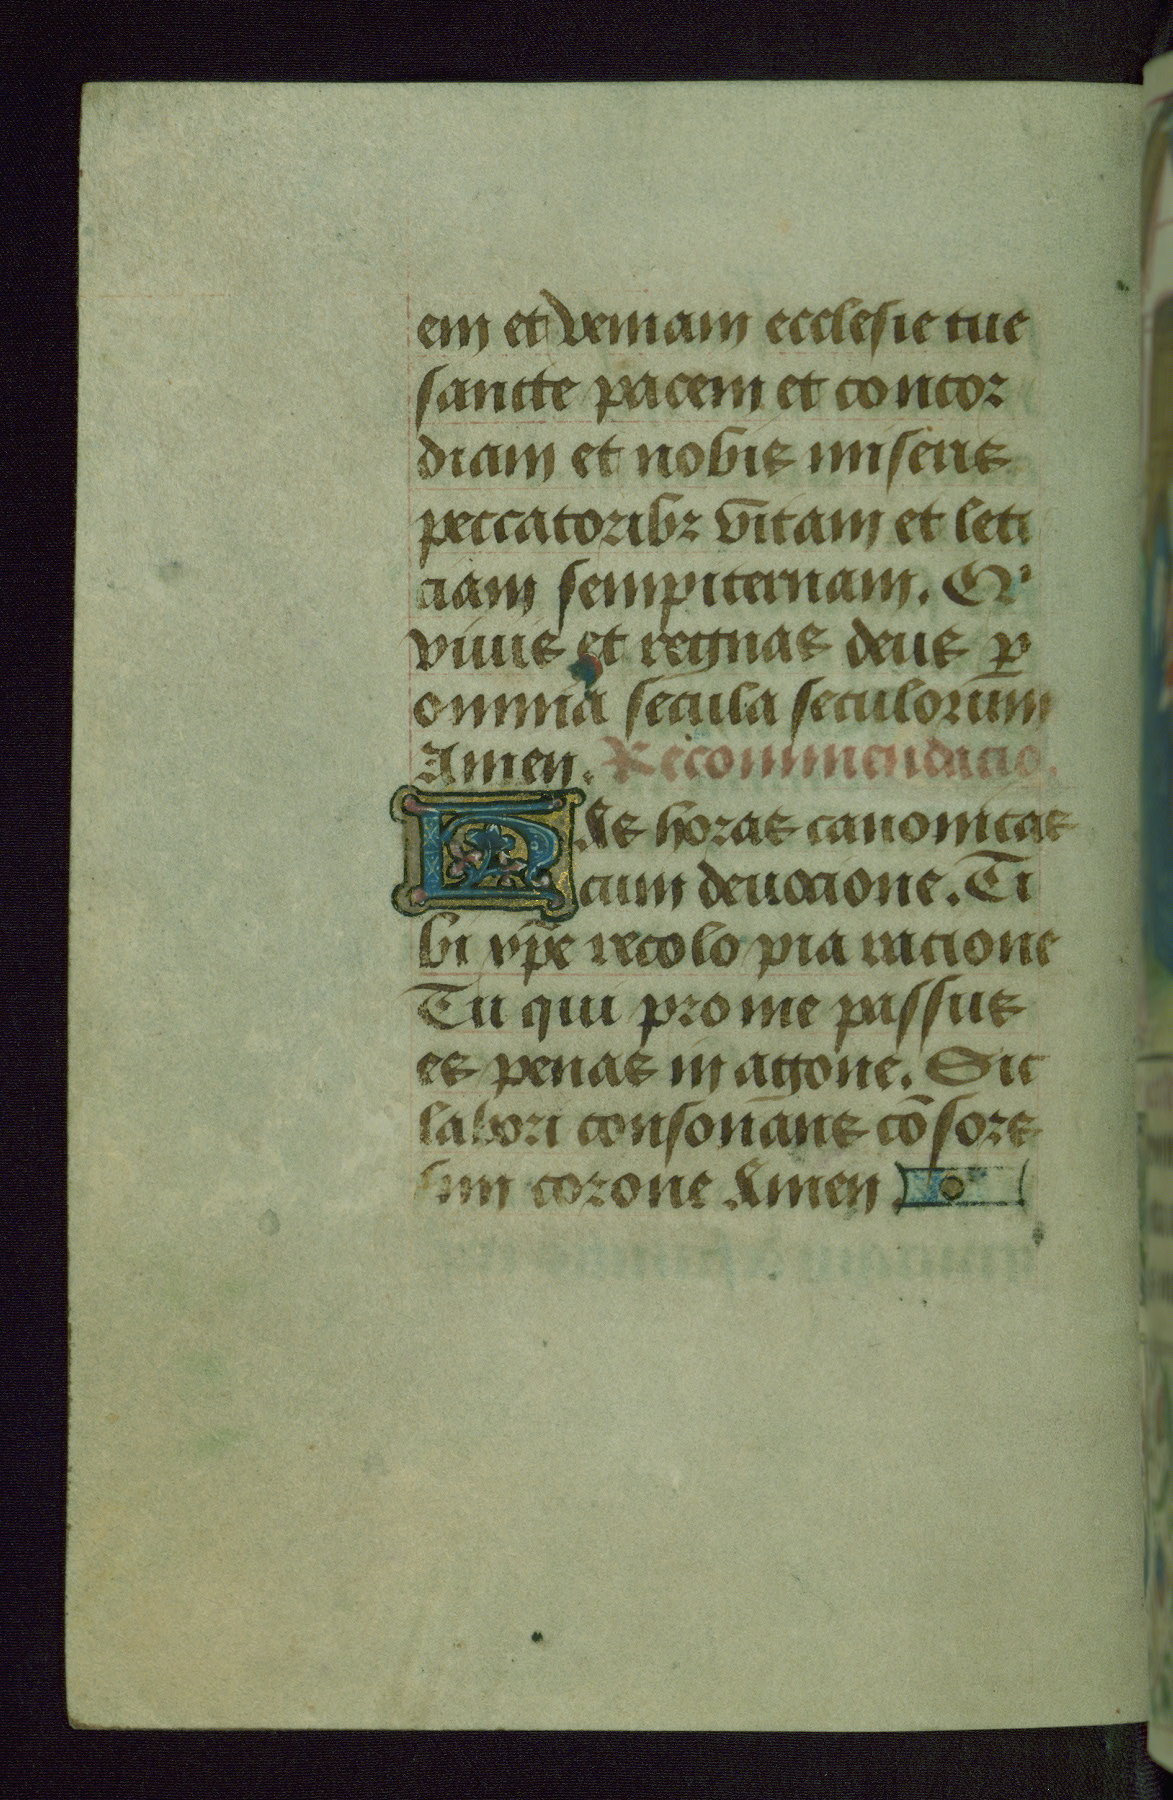 em et veniam ecclesie tue
sancte pacem et concor
diam et nobis miseris
peccatoribꝫ vitam et leti
ciam sempiternam. Qͥ
viuis et regnas deus ꝑ
omnia secula seculorum
Amen. Recommendacio.
HAs horas canonicas
cum deuocione. Ti
bi xp̄e recolo pia racione
Tu qui pro me passus
es penas in agone. Sic
labori consonans cōsors
sim corone Amen.